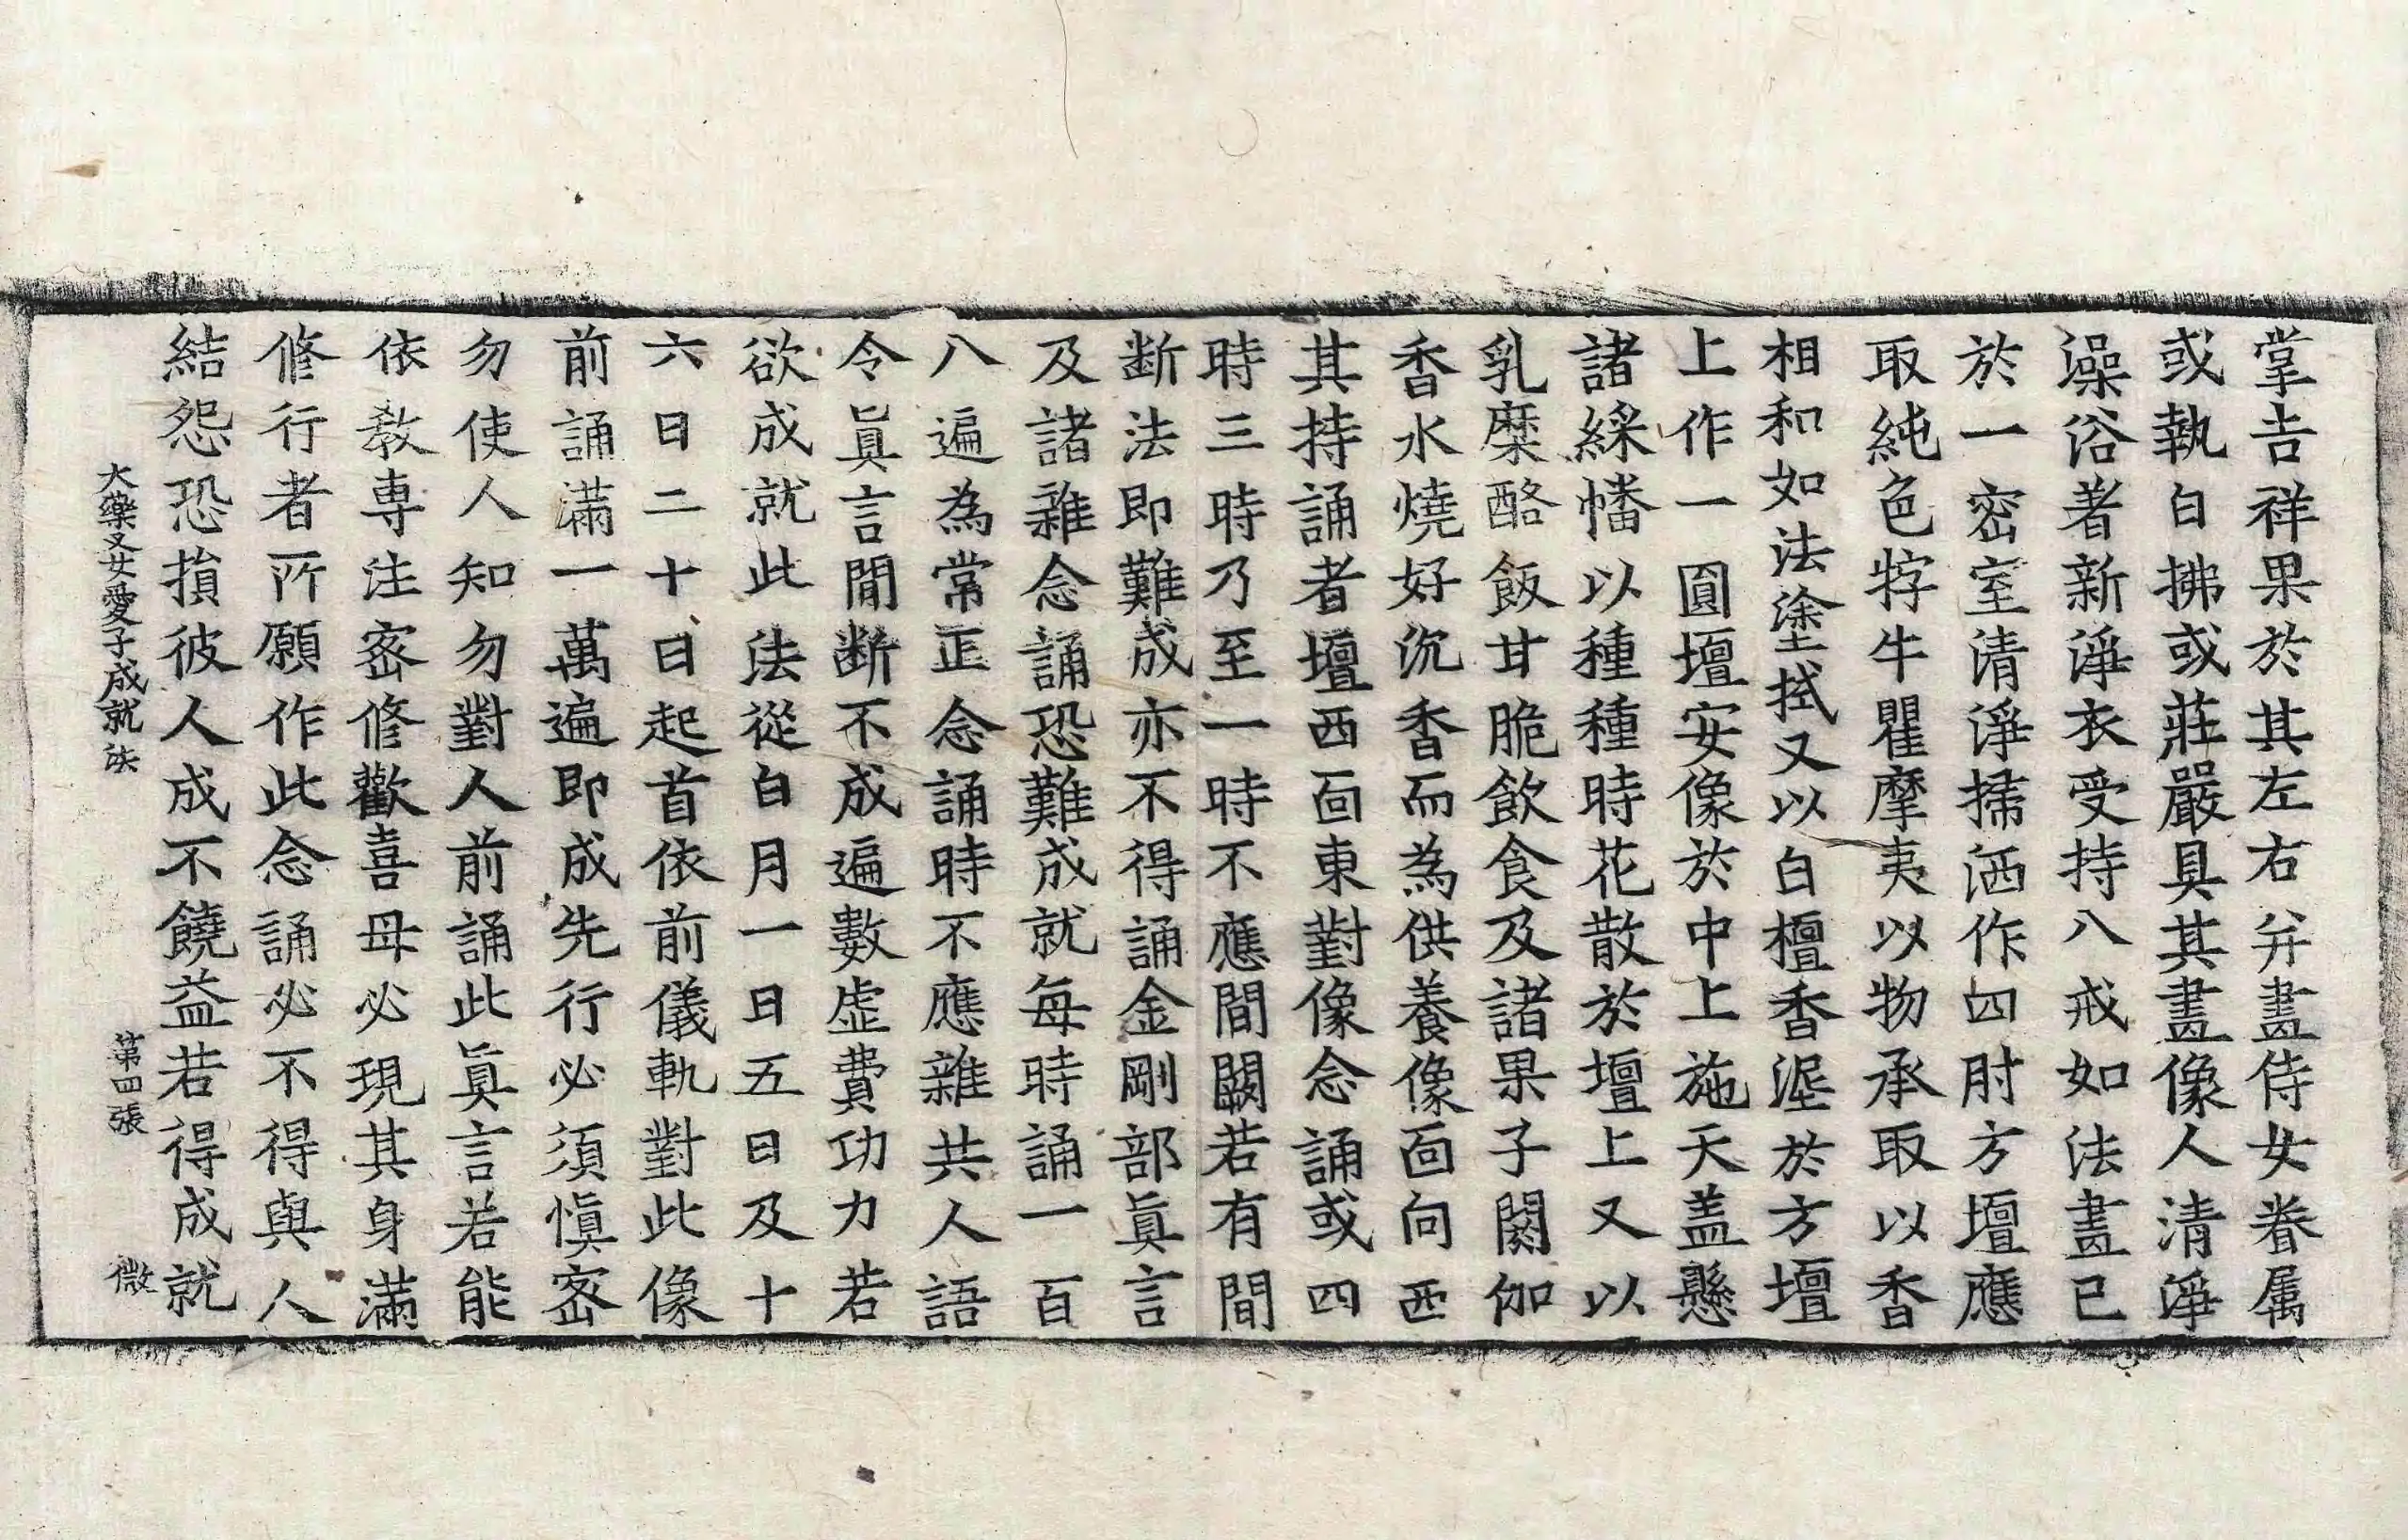 掌吉祥果於其左右并畫侍女眷属
或執白拂或莊嚴具其畫像人清淨
澡浴著新淨衣受持八戒如法畫已
於一密室清淨掃洒作四肘方壇應
取純色牸牛瞿摩夷以物承取以香
相和如法塗拭又以白檀香泥於方壇
上作一圓壇安像於中上施天盖懸
諸綵幡以種種時花散於壇上又以
乳糜酪飯甘脆飲食及諸果子閼伽
香水燒好沉香而為供養像面向西
其持誦者壇西面東對像念誦或四
時三時乃至一時不應間闕若有間
断法即難成亦不得誦金剛部眞言
及諸雜念誦恐難成就每時誦一百
八遍為常正念誦時不應雜共人語
令眞言間断不成遍數虛費功力若
欲成就此法從白月一日五日及十
六日二十日起首依前儀軌對此像
前誦滿一萬遍即成先行必須慎密
勿使人知勿對人前誦此眞言若能
依教專注密修歡喜母必現其身滿
修行者所願作此念誦必不得與人
結怨恐損彼人成不饒益若得成就
大藥叉女愛子成就法 第四張 微